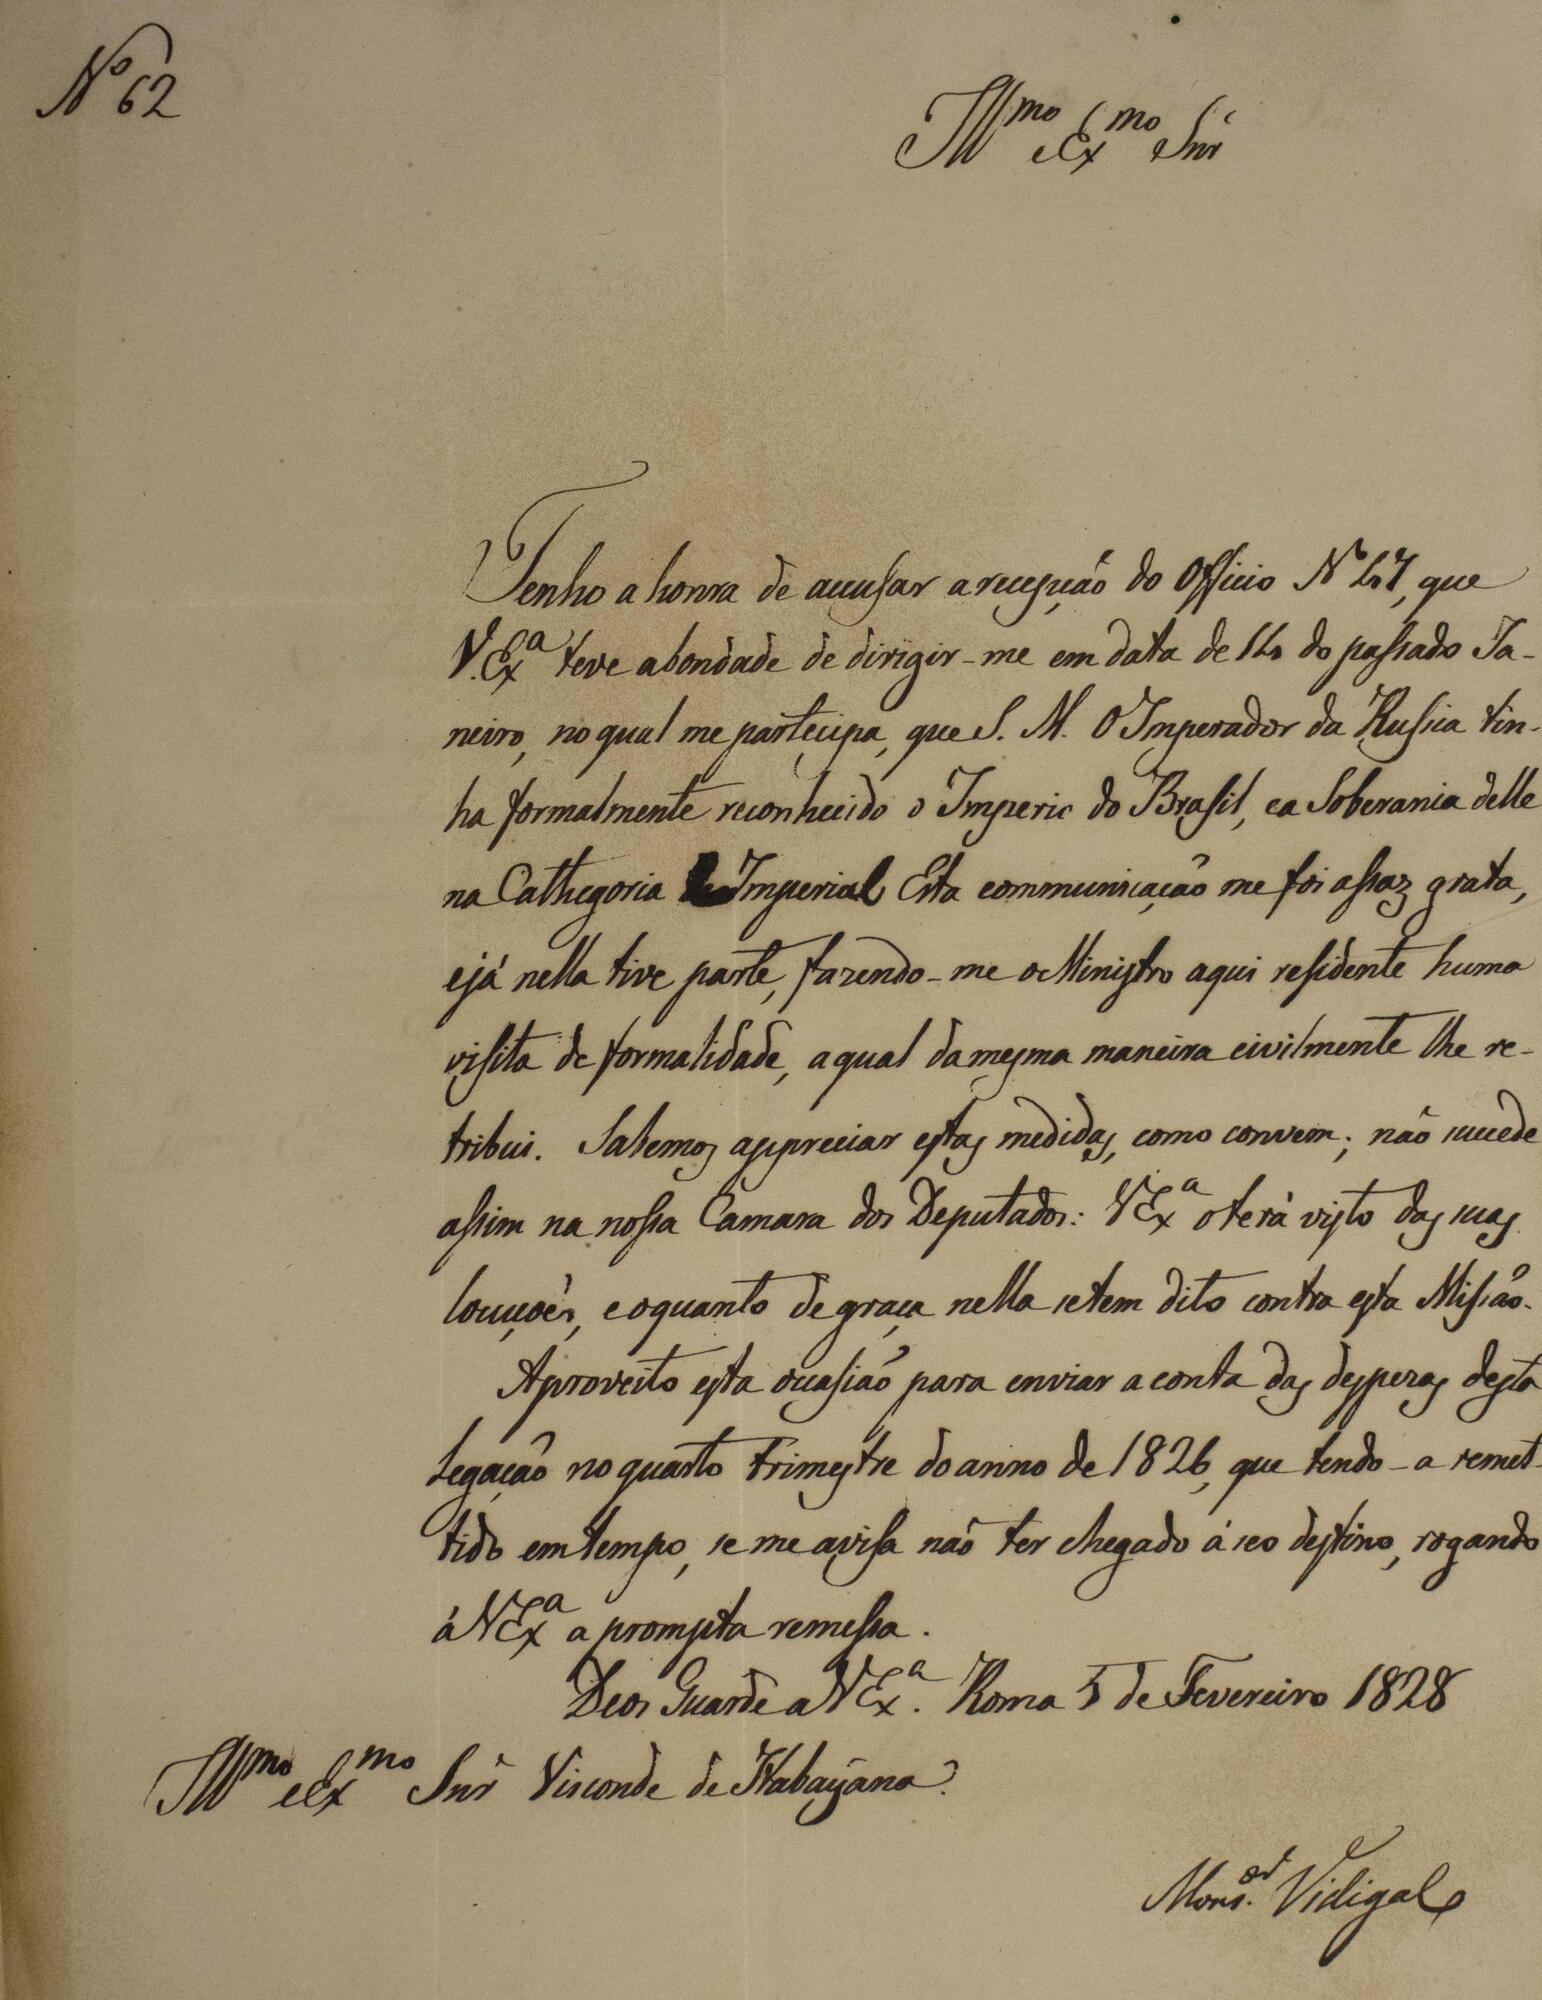 Nº 62
Illmo e Exmo Snr
Tenho a honra de accusar a recepção do Officio Nº 47, que
V.Exª teve abondade de dirigir-me em data de 14 do passado Ja-
neiro, no qual me partecipa, que S. M. O Imperador da Russia tin-
ha formalmente reconhecido o Imperio do Brasil, ea Soberania delle
na Cathegoria de Imperial Esta communicação me foi assaz grata,
ejá nella tive parte, fazendo-me o Ministro aqui residente huma
visita de formalidade, aqual damesma maneira civilmente lhe re-
tribui. Sabemos appreciar estas medidas, como convem; não succede
assim na nossa Camara dos Deputados: VExª oterá visto das suas
locuções, eoquanto de graça nella setem dito contra esta Missão.
Aproveito esta occasião para enviar aconta das despezas desta
Legação noquarto trimestre doanno de 1826, que tendo-a remet-
tido emtempo, se me avisa não ter chegado á seo destino, rogando
á VExª a prompta remessa.
Deos Guarde a VExª. Roma 5 de Fevereiro 1828
Illmo e Exmo Snr Visconde de Itabayana.
Monsor. Vidigal